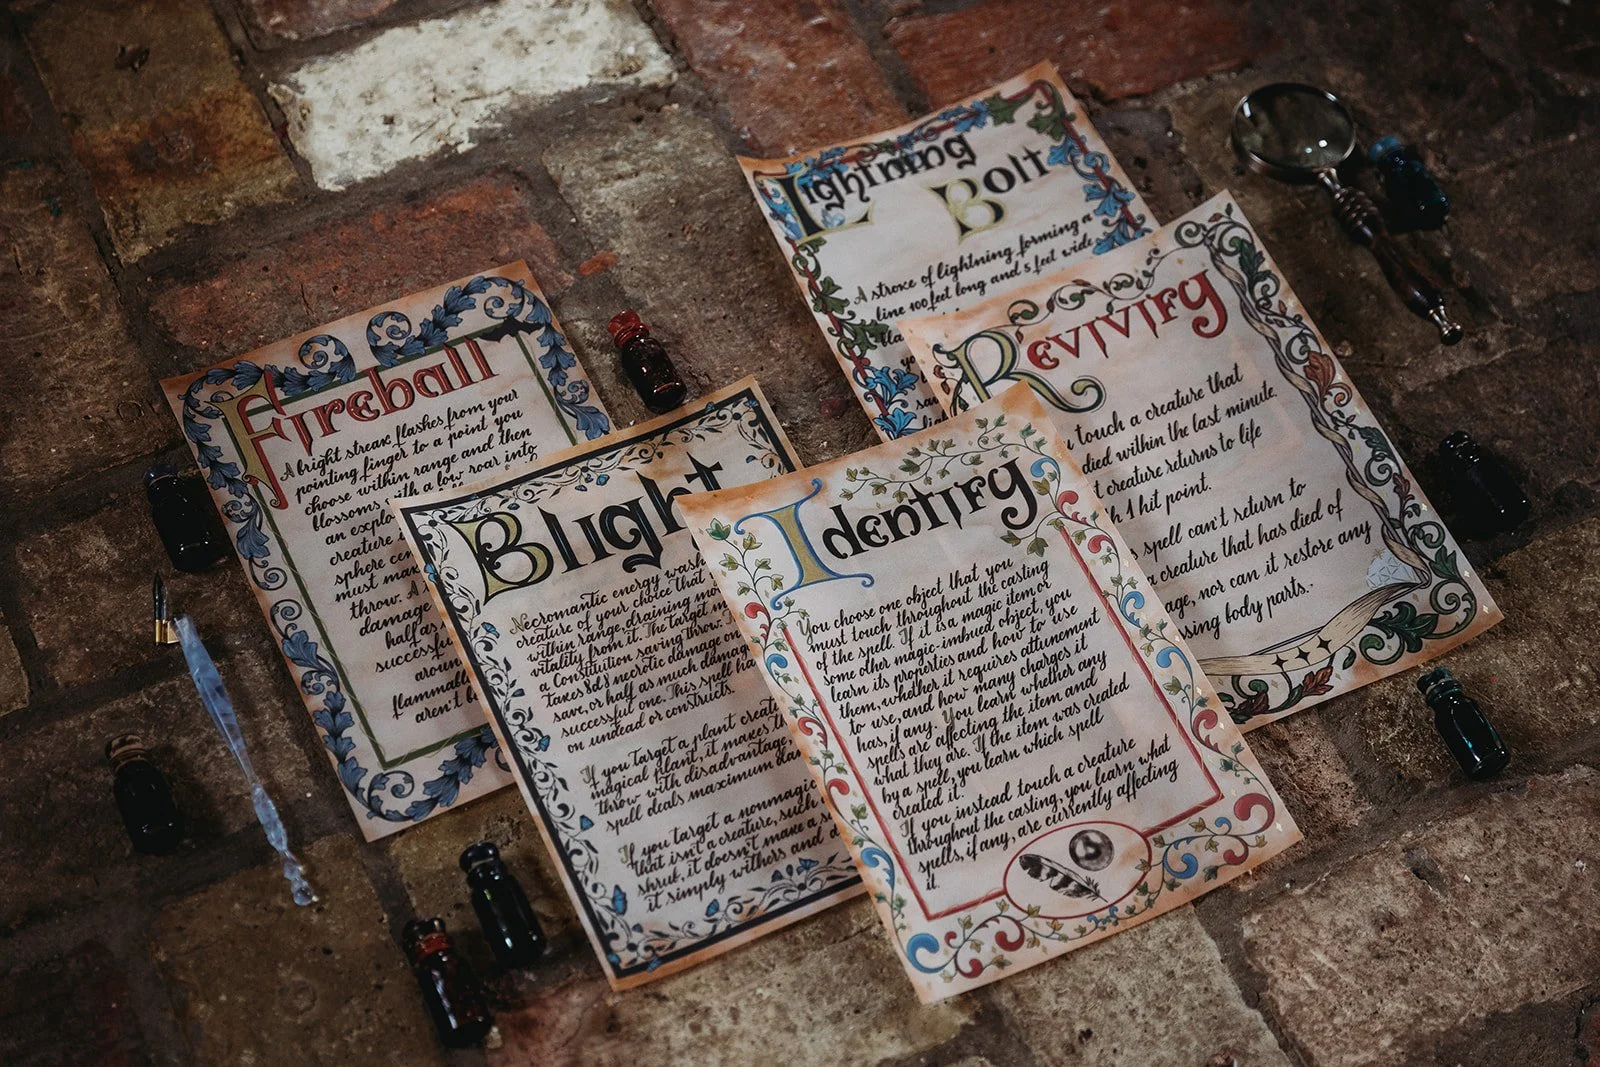 Fireball
A bright streak flashes from your
pointing finger to a point you
choose within range and then
blossoms with a low roar into
an explo
creature i
sphere cen
must mak
throw. A
damage
half as
successfu
aroun
flammabl
aren't b
Blight
Necromantic energy wash
creature of your choice that
within range, draining mo
vitality from it. The target m
a Constitution saving throw.
takes 8d8 necrotic damage on
save, or half as much damag
successful one. This spell ha
on undead or constructs.
If you target a plant creatu
magical plant, it makes th
throw with disadvantage,
spell deals maximum dam
If you target a nonmagic
that isn't a creature, such
shrub, it doesn't make a s
it simply withers and d
Identify
You choose one object that you
must touch throughout the casting
of the spell. If it is a magic item or
some other magic-imbued object, you
learn its properties and how to use
them, whether it requires attunement
to use, and how many charges it
has, if any. You learn whether any
spells are affecting the item and
what they are. If the item was created
by a spell, you learn which spell
created it.
If you instead touch a creature
throughout the casting, you learn what
spells, if any, are currently affecting
it.
Lightning
Bolt
A stroke of lightning forming a
line 100 feet long and 5 feet wide
bla
yo
sa
lig
Revivify
u touch a creature that
died within the last minute.
t creature returns to life
h 1 hit point.
s spell can't return to
a creature that has died of
age, nor can it restore any
ssing body parts.